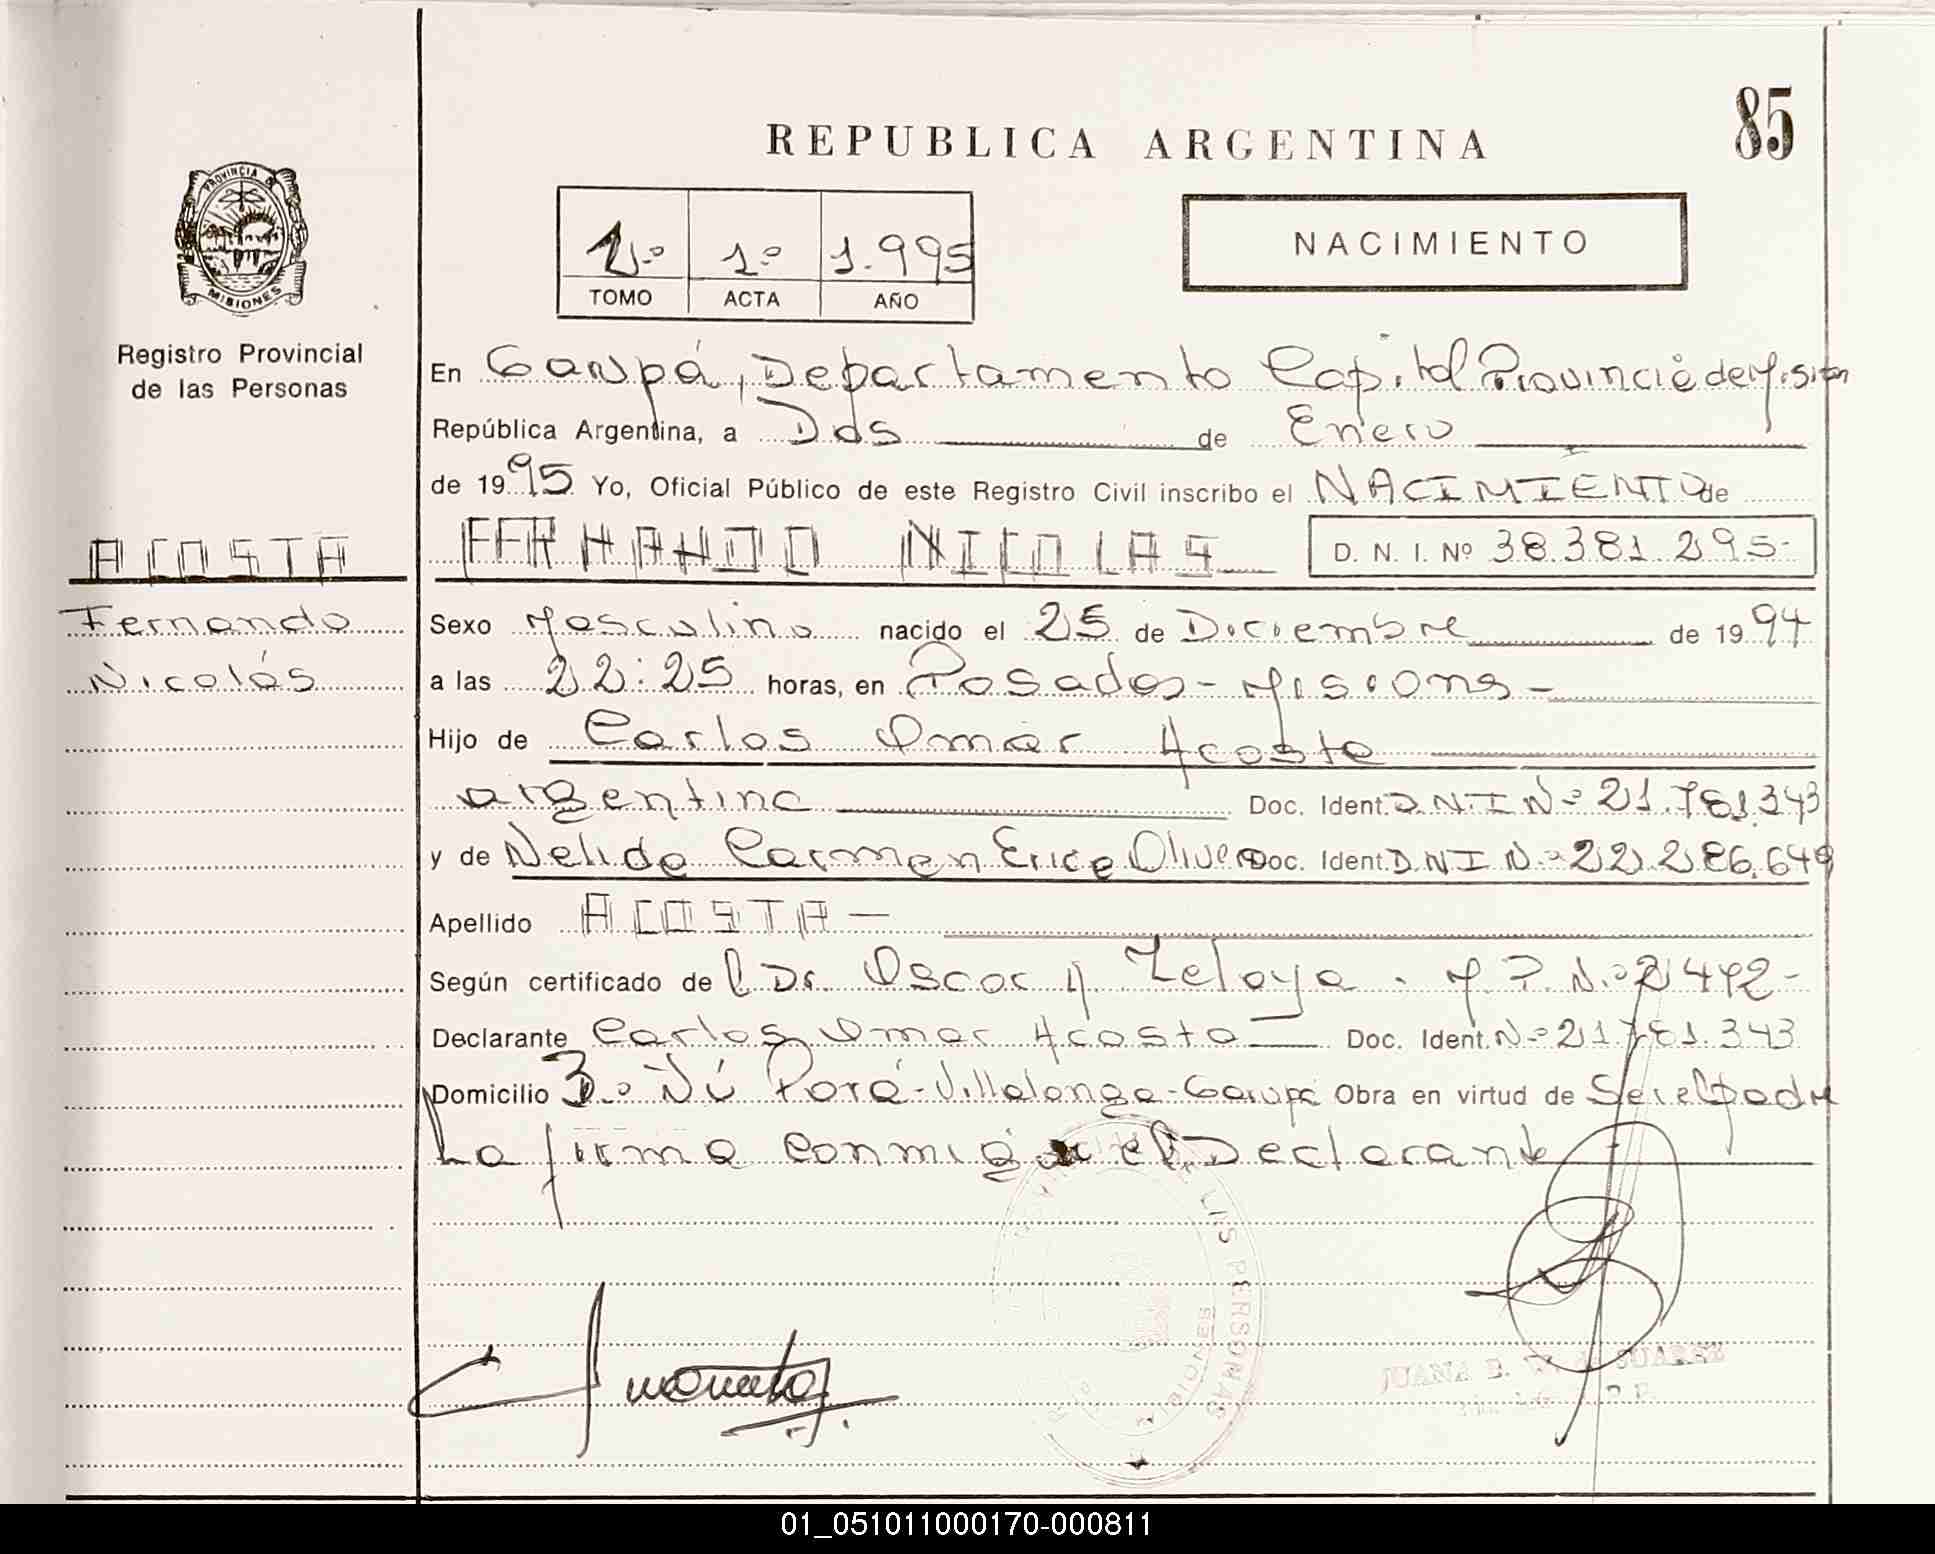 85
REPUBLICA ARGENTINA
PROVINCIA DE
MISIONES
1º 1º 1.995
TOMO ACTA AÑO
NACIMIENTO
Registro Provincial
de las Personas
En Garupá, Departamento Capital Provincia de Mision
República Argentina, a Dos de Enero
de 1995 Yo, Oficial Público de este Registro Civil inscribo el NACIMIENTO de
ACOSTA
Fernando
Nicolás
FERNANDO NICOLAS D. N. I. Nº 38.381.295-
Sexo Masculino nacido el 25 de Diciembre de 1994
a las 22:25 horas, en Posadas - Misiones -
Hijo de Carlos Omar Acosta
argentina Doc. Ident. D.N.I Nº 21.781.343
y de Nelida Carmen Erice Olivera Doc. Ident. D.N.I N.º 22.286.649
Apellido ACOSTA -
Según certificado de l Dr. Oscar A Zeloya . M.P. N.º 2472-
Declarante Carlos Omar Acosta Doc. Ident. Nº 21.781.343
Domicilio Bº Ñú Porá - Villalonga - Garupá Obra en virtud de Ser el padre
La firma conmigo el Declarante
LAS PERSONAS
MISIONES
JUANA E. de SUAREZ
01_051011000170-000811